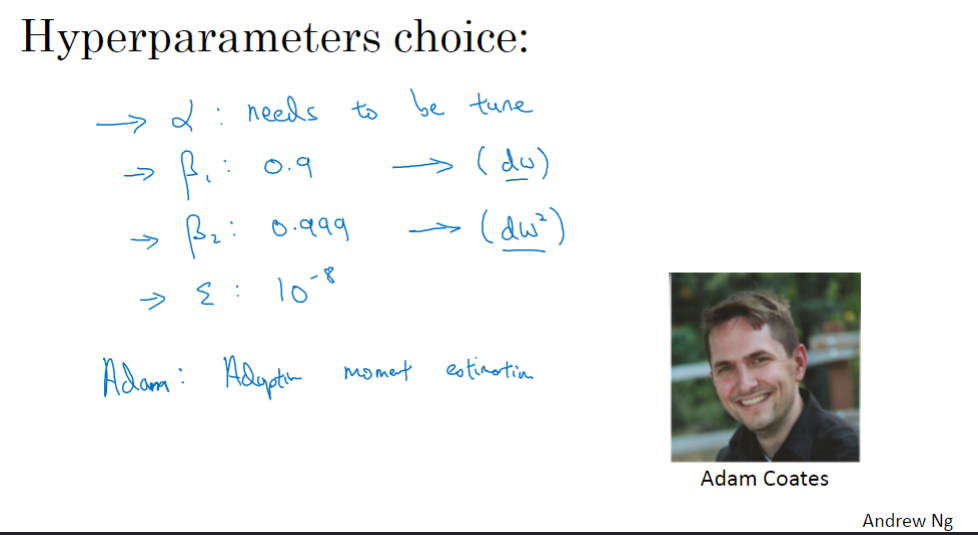 Hyperparameters choice:
→ α : needs to be tune
→ β₁ : 0.9 → (dw)
→ β₂ : 0.999 → (dw²)
→ ε : 10⁻⁸
Adam : Adaptin momet estimatin
Adam Coates
Andrew Ng